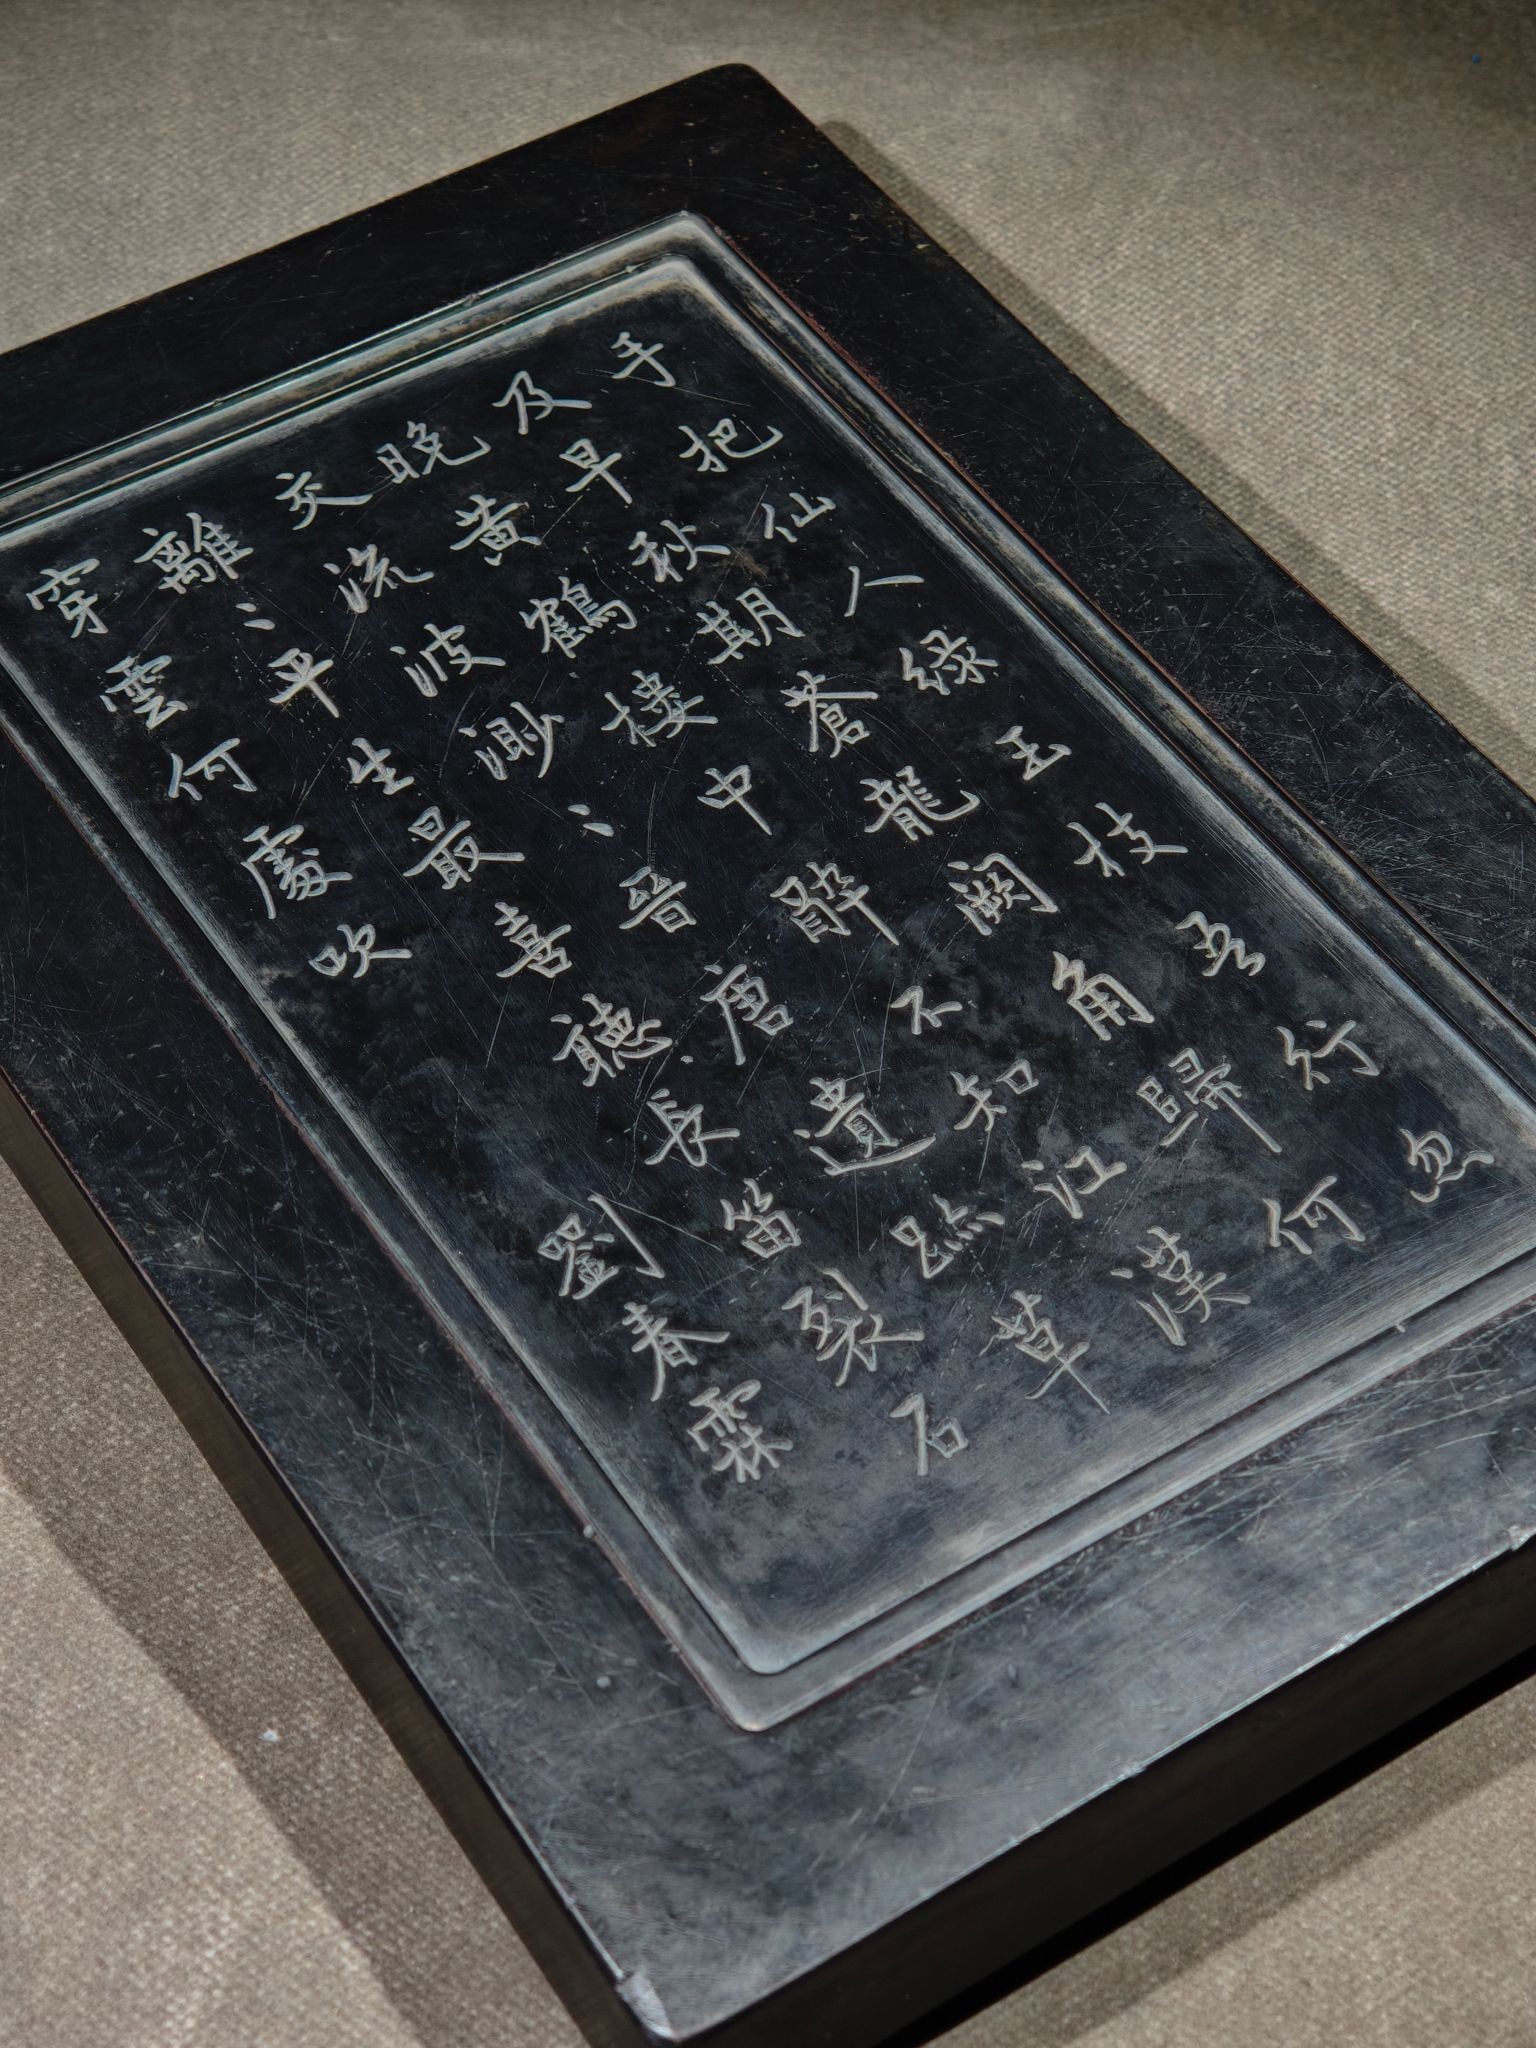 手把仙人綠玉枝吾行忽
及早秋期蒼龍闕角歸何
晚黃鶴樓中醉不知江漢
交流波渺〻晉唐遺跡草
離〻平生最喜聽長笛裂石
穿雲何處吹
劉春霖